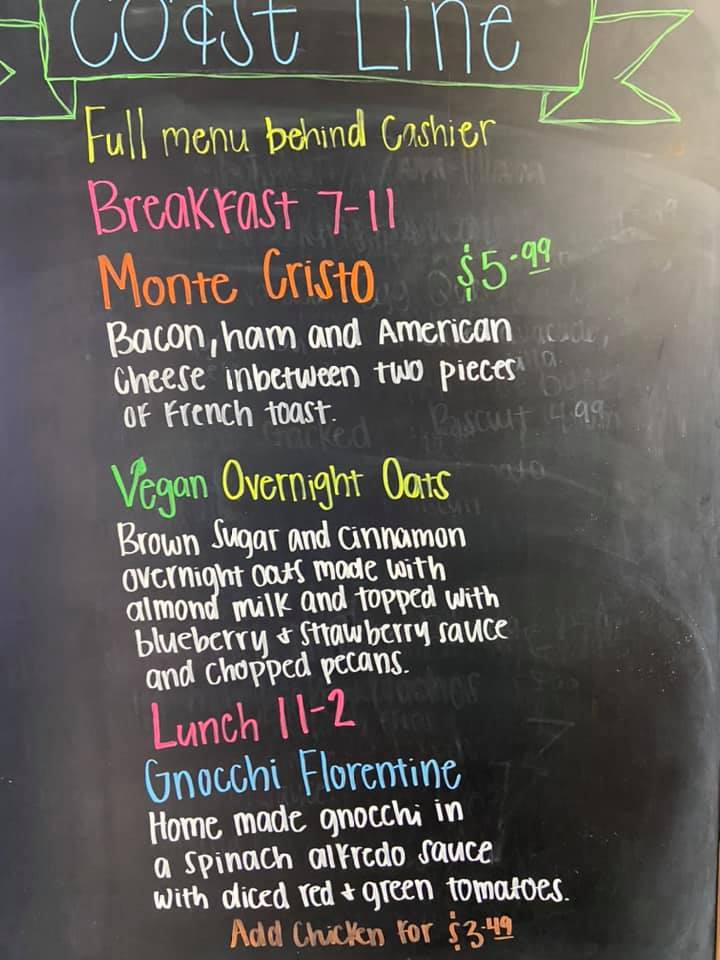 Coast Line
Full menu behind Cashier
Breakfast 7-11
Monte Cristo $5.99
Bacon, ham and American
Cheese inbetween two pieces
of French toast.
Vegan Overnight Oats
Brown Sugar and Cinnamon
overnight oats made with
almond milk and topped with
blueberry & Strawberry sauce
and Chopped pecans.
Lunch 11-2
Gnocchi Florentine
Home made gnocchi in
a spinach alfredo sauce
with diced red + green tomatoes.
Add Chicken for $3.49